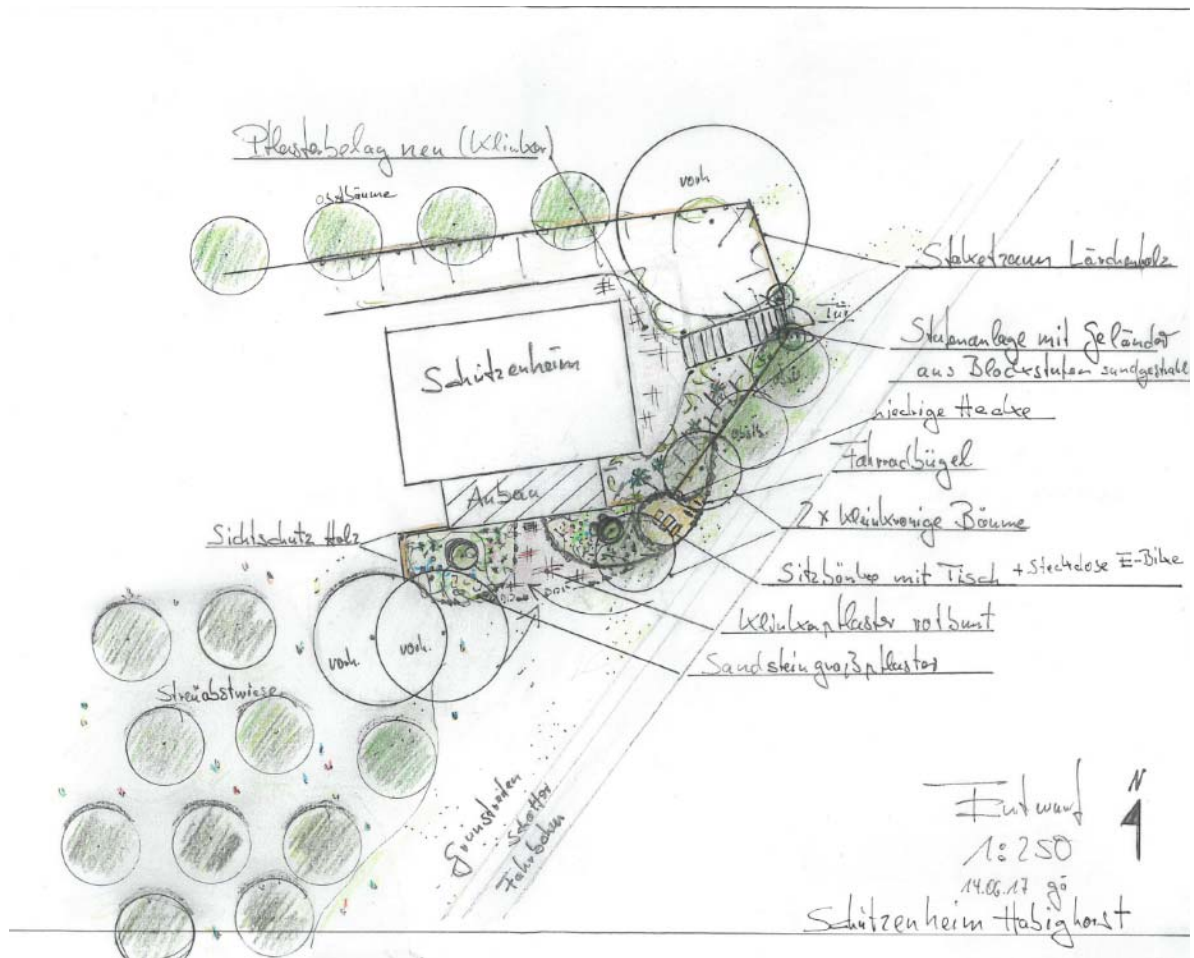 Pflasterbelag neu (Klinker)
Obstbäume
vorh.
Staketzaun Lärchenholz
Tür
Stufenanlage mit Geländer
aus Blockstufen sandgestrahlt
Schützenheim
niedrige Hecke
obstb.
Fahrradbügel
Anbau
2 x kleinkronige Bäume
Sichtschutz Holz
Sitzbänke mit Tisch + Steckdose E-Bike
Klinkerpflaster rotbunt
vorh.
vorh.
Sandsteingroßpflaster
Streuobstwiese
Grünstreifen
Schotter
Fahrbahn
N
Entwurf
1:250
14.06.17 gö
Schützenheim Habighorst